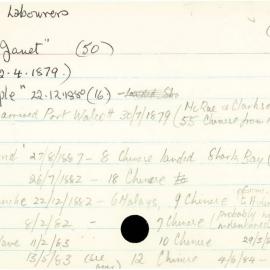 Labourers
Janet" (50)
2.4.1879.)
ple" 22.12.1880 (16) -
McRae & Clarkson
armed Port Walcott 30/7/1879 (55 Chinese from
nd" 27/8/1887 - 8 Chinese landed Shark Bay (
26/7/1882 - 18 Chinese
22/12/1882 - 6 Malays, 9 Chinese
probably
8/2/82 - 7 Chinese
ave 11/2/83 10 Chinese
13/5/83 (see 12 Chinese 4/6/84 -